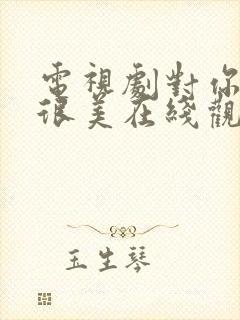 電視劇對你
很美在綫觀
玉生琴